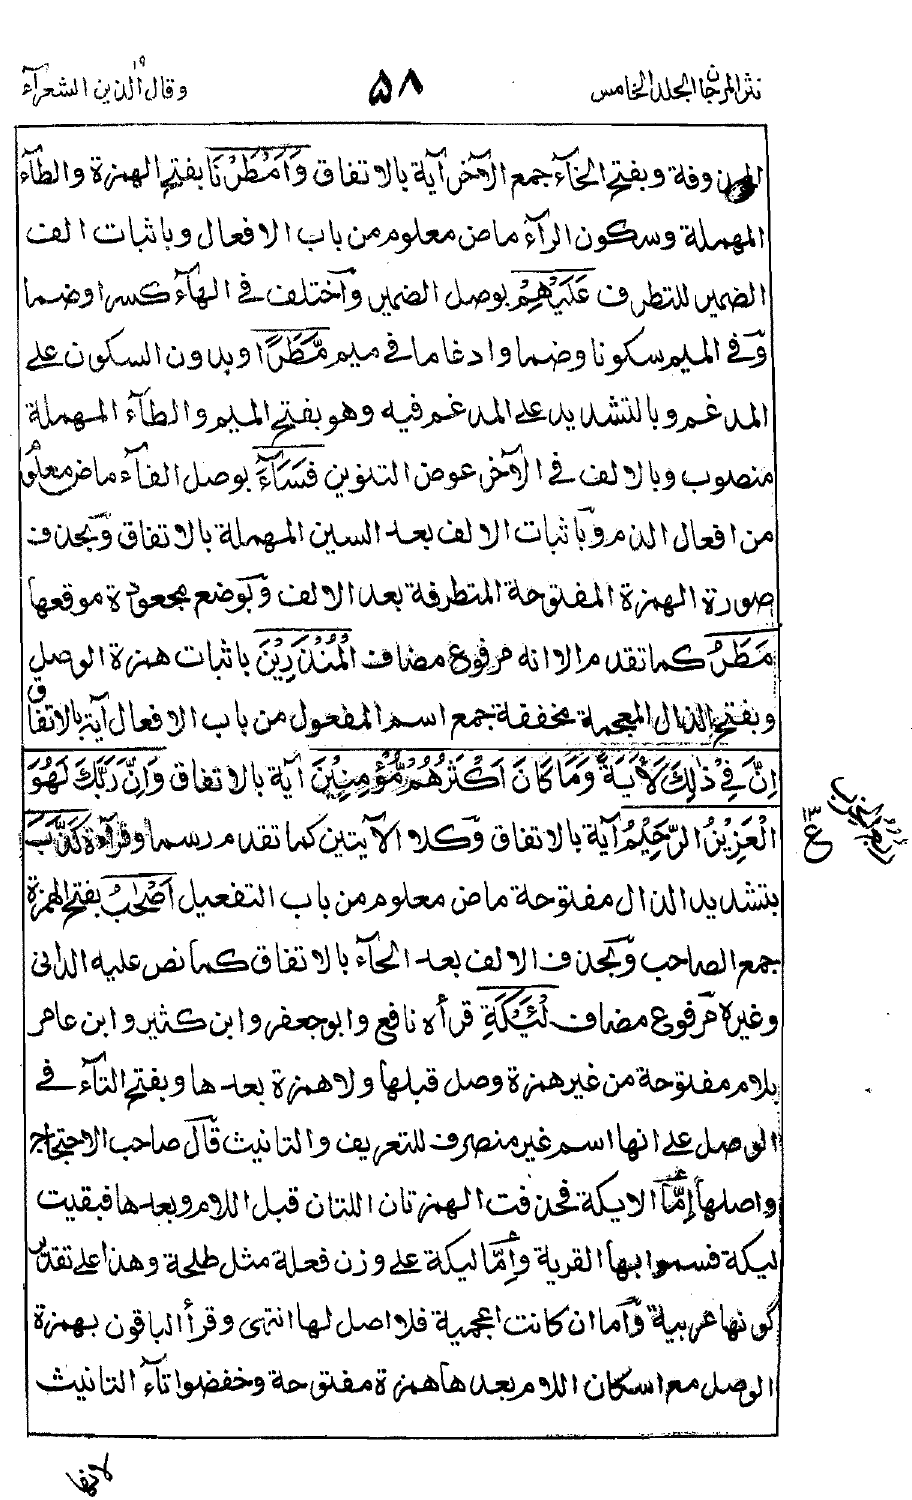 نثر المرجان الجلد الخامس
۵۸
وقال الذين ۱۹ الشعرآء
وبفتح الخآء جمع الآخر آية بالاتفاق وَاَمْطَرْنَا بفتح الهمزة والطآء
المهملة وسكون الرآء ماض معلوم من باب الافعال وباثبات الف
الضمير للتطرف عَلَيْهِمْ بوصل الضمير وآختلف في الهآء كسرا وضما
وفي الميم سكونا وضما وادغاما في ميم مَّطَرًا وبدون السكون على
المدغم وبالتشديد على المدغم فيه وهو بفتح الميم والطآء المهملة
منصوب وبالالف في الآخر عوض التنوين فَسَآءَ بوصل الفآء ماض معلوم
من افعال الذم وبآثبات الالف بعد السين المهملة بالاتفاق وبحذف
صورة الهمزة المفتوحة المتطرفة بعد الالف وبوضع مجعودة موقعها
مَطَرُ كما تقدم الا انه مرفوع مضاف الْمُنْذَرِيْنَ باثبات همزة الوصل
وبفتح الذال المعجمة مخففة جمع اسم المفعول من باب الافعال آية بالاتفاق
اِنَّ فِيْ ذٰلِكَ لَاٰيَةً وَمَا كَانَ اَكْثَرُهُمْ مُّؤْمِنِيْنَ آية بالاتفاق وَاِنَّ رَبَّكَ لَهُوَ
الْعَزِيْزُ الرَّحِيْمُ آية بالاتفاق وكلا الآيتين كما تقدم رسما وقرآءة كَذَّبَ
بتشديد الذال مفتوحة ماض معلوم من باب التفعيل اَصْحٰبُ بفتح الهمزة
جمع الصاحب وبحذف الالف بعد الحآء بالاتفاق كما نص عليه الدانى
وغيره مرفوع مضاف لْئَيْكَةِ قرأه نافع وابو جعفر وابن كثير وابن عامر
بلام مفتوحة من غير همزة وصل قبلها ولا همزة بعدها وبفتح التآء في
الوصل على انها اسم غير منصرف للتعريف والتانيث قال صاحب الاحتجاج
واصلها إمّآ الايكة فحذفت الهمزتان اللتان قبل اللام وبعدها فبقيت
ليكة فسموا بها القرية وإمّا ليكة على وزن فعلة مثل طلحة وهذا على تقدير
كونها عربية وآما ان كانت اعجمية فلا اصل لها انتهى وقرأ الباقون بهمزة
الوصل مع اسكان اللام بعدها همزة مفتوحة وخفضوا تآء التانيث
ع
۱۳
لانها